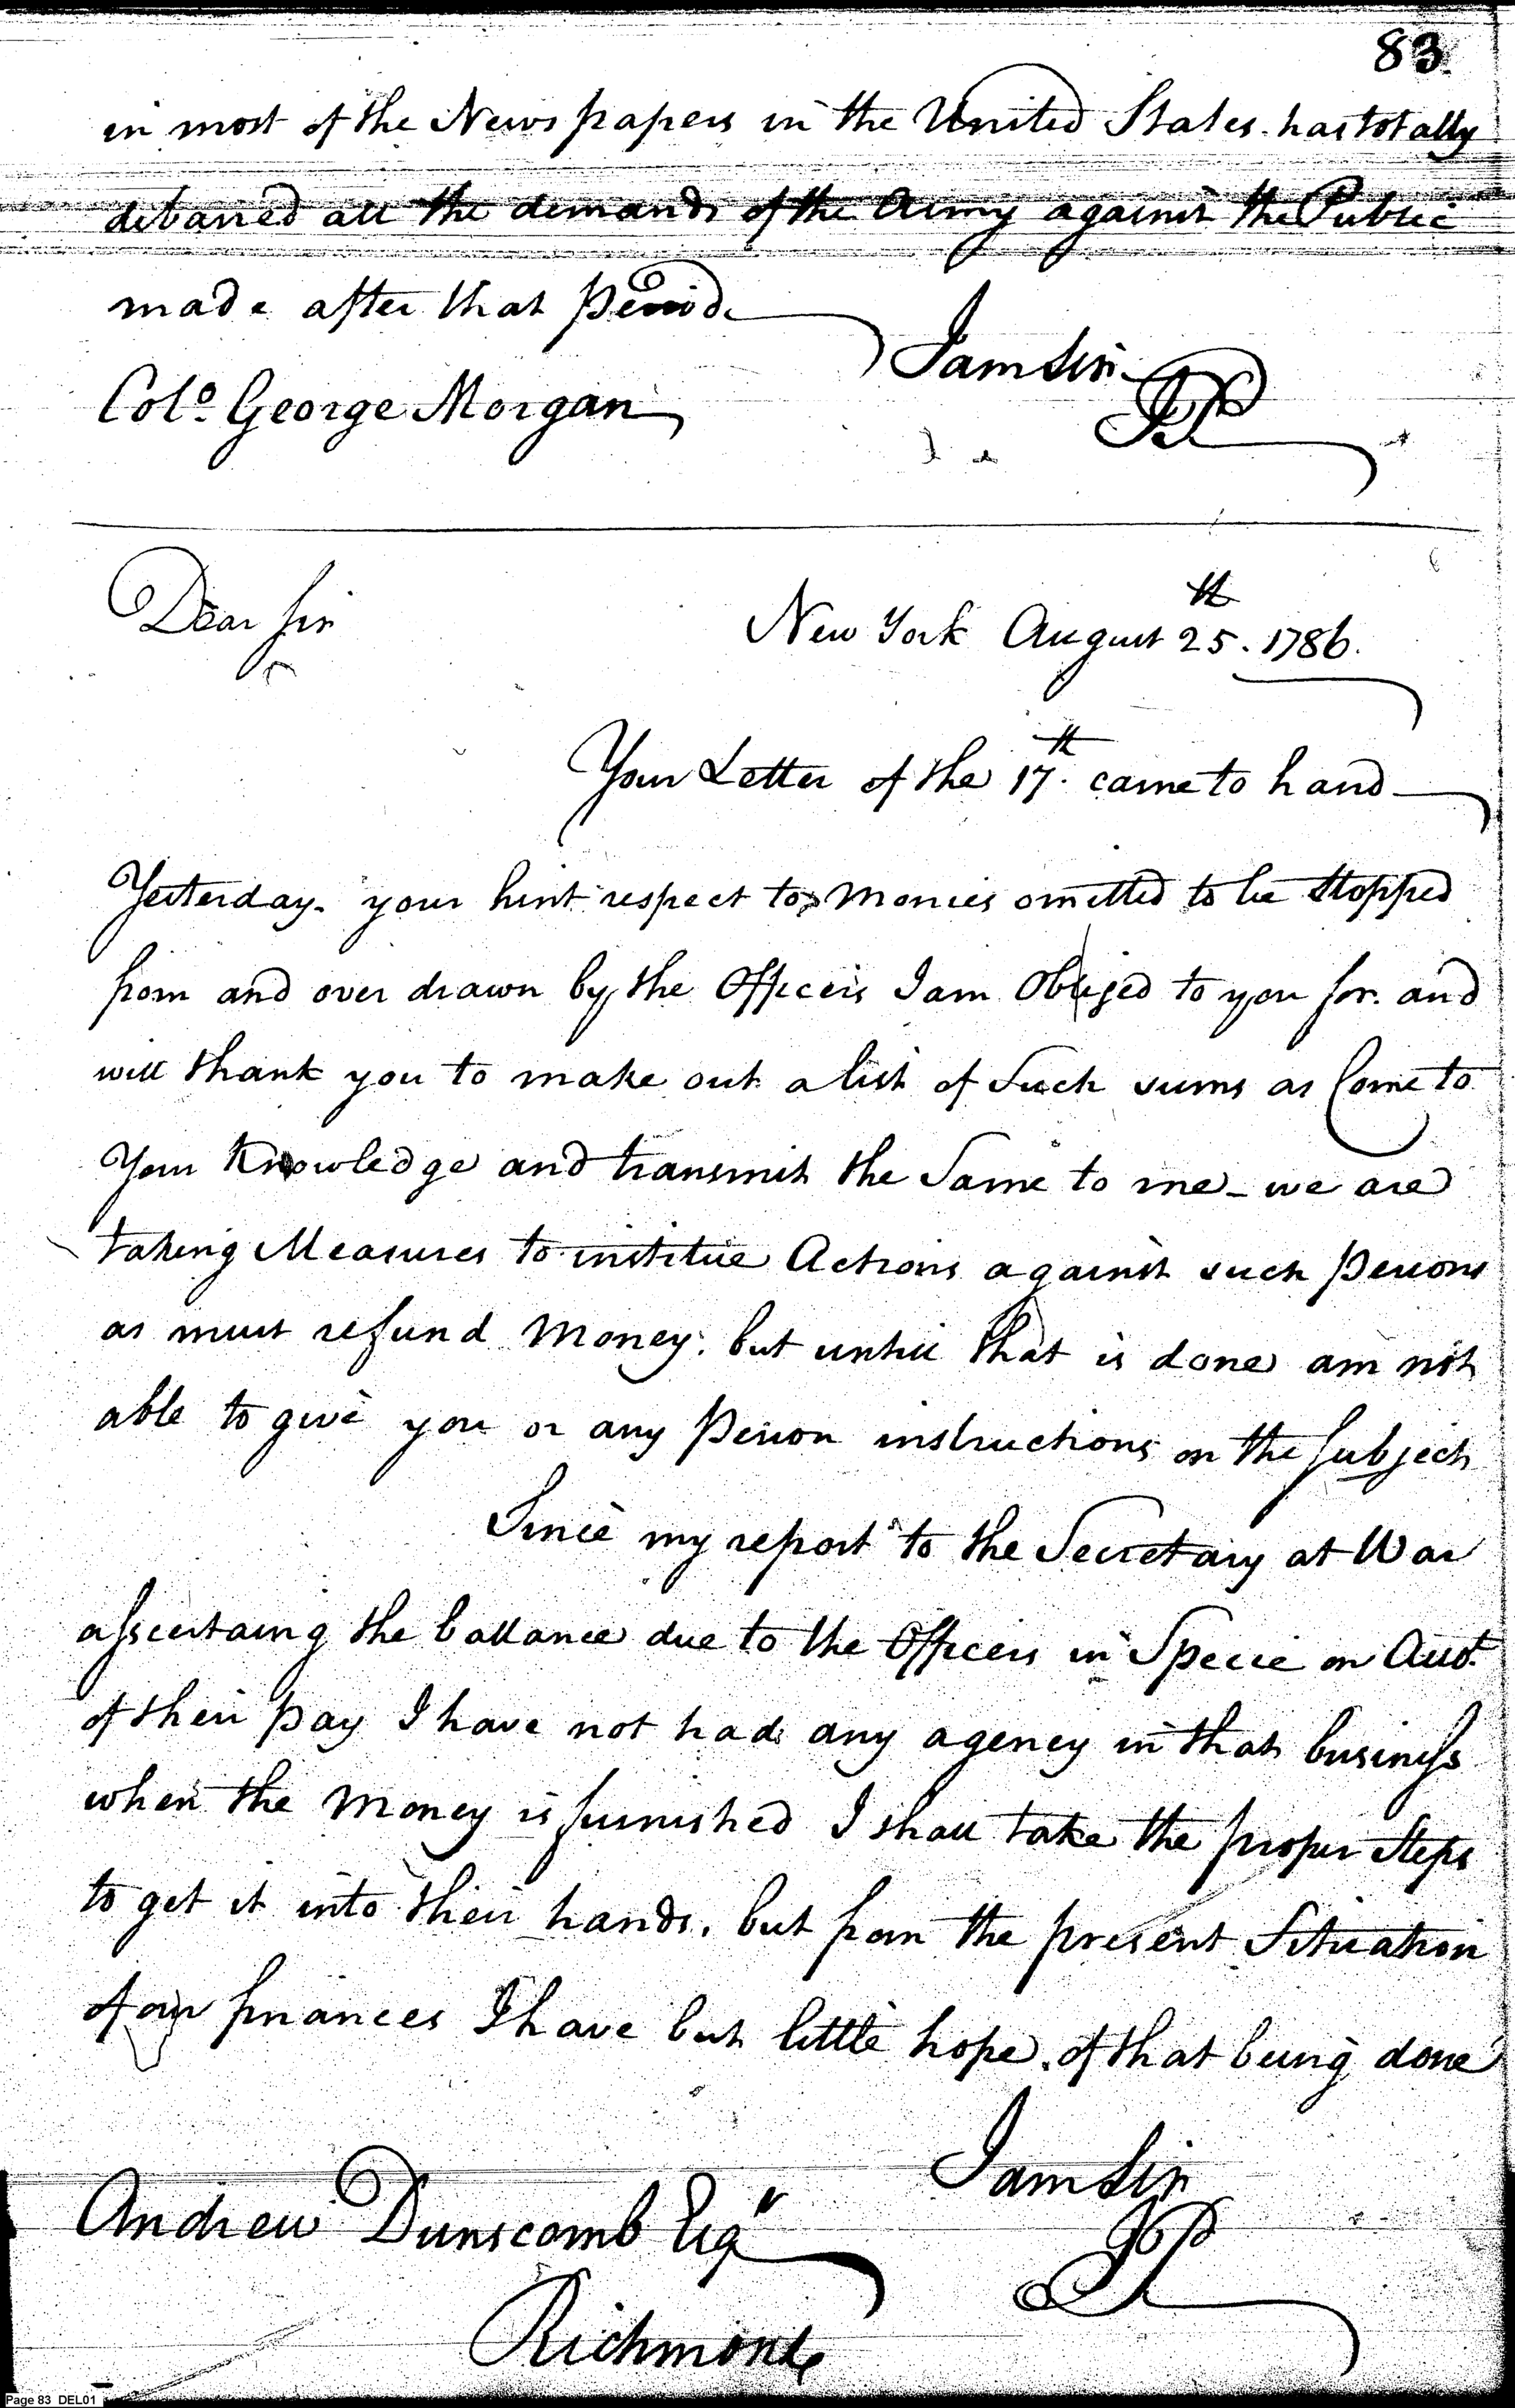 83.
in most of the Newspapers in the United States. has totally
debarred all the demands of the Army against the Public
made after that Period.
I am Sir
Colo. George Morgan
JP
Dear Sir
New York August 25th. 1786.
Your Letter of the 17th. came to hand
Yesterday. your hint respect to Monies omitted to be Stopped
from and over drawn by the Officers I am Obliged to you for. and
will thank you to make out a list of Such sums as Come to
Your Knowledge and transmit the Same to me - we are
taking Measures to institue Actions against such Persons
as must refund Money. but untill that is done am not
able to give you or any Person instructions on the Subject
Since my report to the Secretary at War
assertaing the ballance due to the Officers in Specie on Acct.
of their Pay I have not had any agency in that business
when the Money is furnished I shall take the proper Steps
to get it into their hands. but from the present Situation
of our finances I have but little hope. of that being done
I am Sir
Andrew Dunscomb Esqr
JP
Richmond
Page 83 DEL01